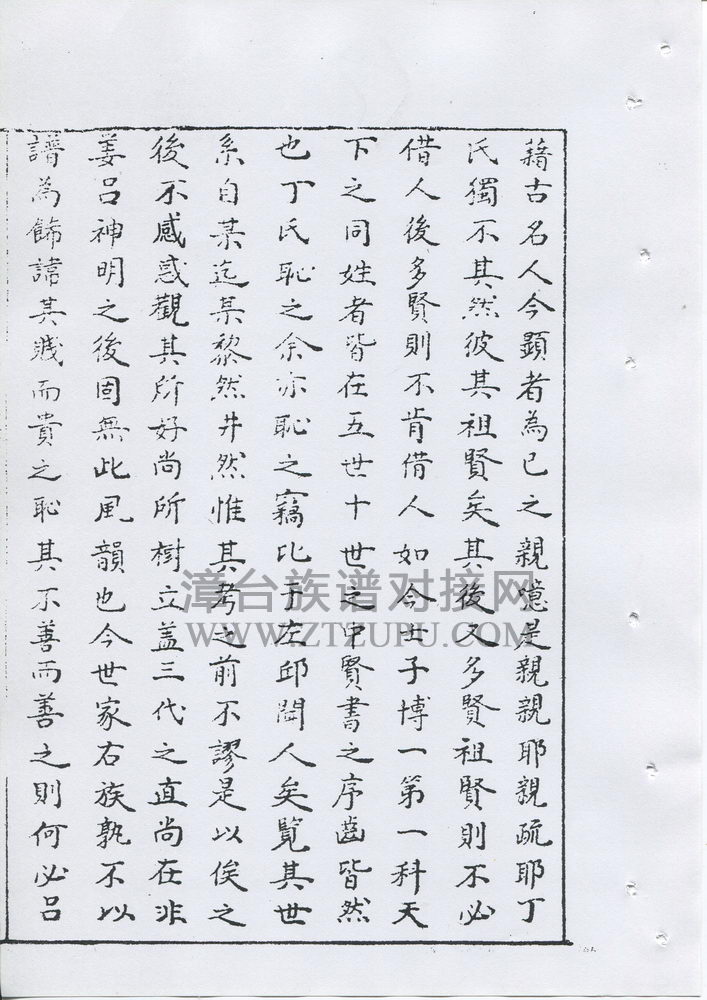 藉古名人今顯者為已之親噫是親親耶親疏耶丁
氏獨不其然彼其祖賢矣其後又多賢祖賢則不必
借人後多賢則不肯借人如今士子博一第一科天
下之同姓者皆在五世十世之中賢書之序齒皆然
也丁氏恥之余亦恥之竊比于左邱閩人矣覧其世
系自某迄某黎然井然惟其考之前不謬是以俟之
後不感惑觀其所好尚所樹立盖三代之直尚在非
姜呂神明之後固無此風韻也今世家右族孰不以
譜為飾諱其賤而貴之恥其不善而善之則何必呂
漳台族谱对接网
WWW.ZTZUPU.COM